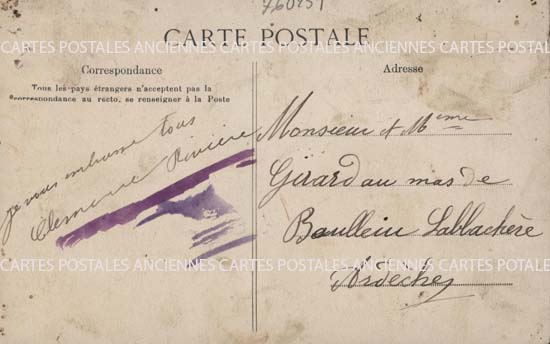 760251
CARTE POSTALE
CARTES POSTALES ANCIENNES CARTES POSTALES ANCIENNES CARTES POSTALES
Correspondance
Tous les pays étrangers n'acceptent pas la
correspondance au recto, se renseigner à la Poste
je vous embrasse tous
Clemence Rivière
Adresse
Monsieur et Mme
Girard au mas de
Baullein Lablachère
Ardèche
CARTES POSTALES ANCIENNES CARTES POSTALES ANCIENNES CARTES POSTALES